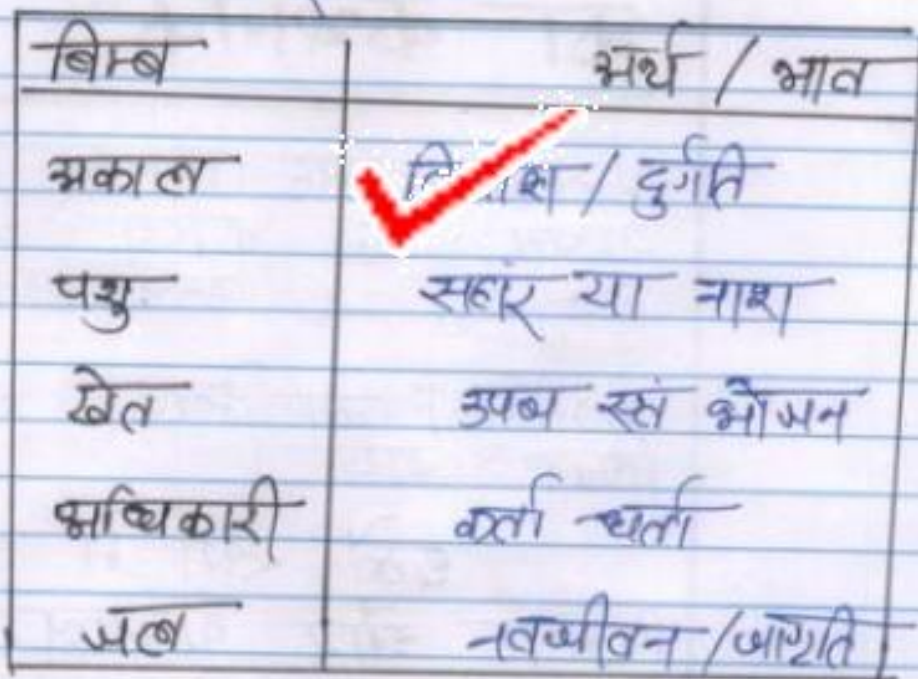 बिम्ब अर्थ / भाव
अकाल विनाश / दुर्गति
पशु संहार या नाश
खेत उपज एवं भोजन
अधिकारी कर्ता धर्ता
जल नवजीवन / जागृति